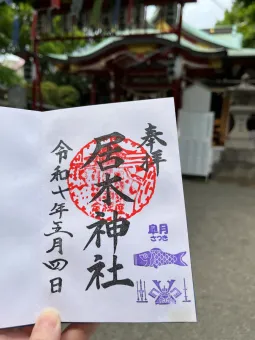 奉拝
居木神社
令和七年五月四日
皐月
さつき